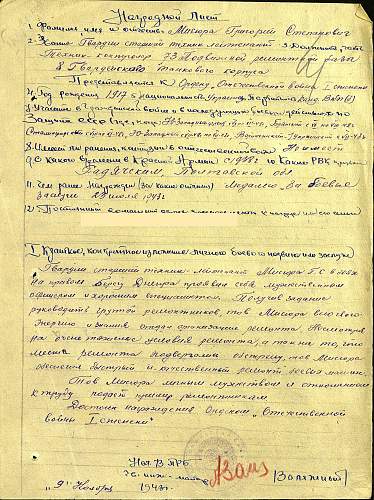 Наградной Лист
1. Фамилия, имя и отчество Мисюра Григорий Степанович
2. Звание Гвардии старший техник лейтенант 3. Должность, часть
Техник 73 Подвижной ремонтной базы
8 Гвардейского танкового корпуса
Представляется к Ордену „Отечественная война I степени
4. Год рождения 1917 5. национальность Украинец 6. Партийность Канд. ВКП(б)
7. Участие в гражданской войне и последующих боевых действиях по
защите СССР
8. Имеет ли ранения, контузии в отечественной войне Не имеет
9. С какого времени в Красной Армии с 1938 г. 10. Каким РВК призван
Гадячским, Полтавской обл.
11. Чем ранее награжден (за какие отличия) Медалью „За боевые
заслуги" 1943 г.
12. Постоянный домашний адрес
I Краткое, конкретное изложение личного боевого подвига или заслуг
Гвардии старший техник-лейтенант Мисюра Г.С. в боях
на правом берегу Днепра проявил себя мужественным
офицером и хорошим специалистом. Получив задание
руководить группой ремонтников, тов. Мисюра всю свою
энергию и знания отдал организации ремонта. Несмотря
на очень тяжелые условия ремонта, а также на то, что
место ремонта подвергалось обстрелу, тов. Мисюра
обеспечил быстрый и качественный ремонт боевых машин.
Тов. Мисюра личным мужеством и отношением
к труду подает пример ремонтникам.
Достоин награждения Орденом „Отечественной
войны I степени"
Нач. 73 ПРБ
инж-майор
„9" Ноября 1943 г.